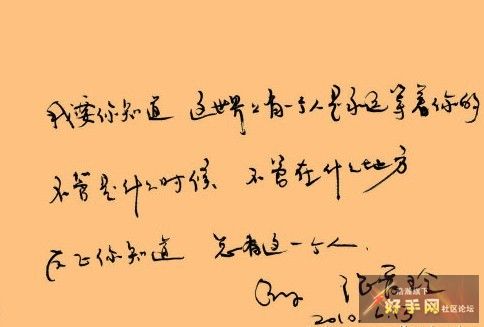 我要你知道 这世界上有一个人是永远等着你的
不管是什么时候、不管在什么地方
反正你知道 总有这一个人.
张爱玲
2010.
浩瀚旗下
好手网 社区论坛